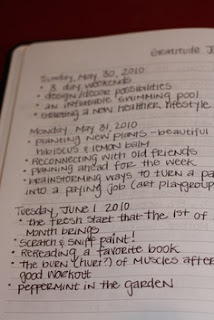 GRATITUDE J
Sunday, May 30, 2010
• 3 day weekends
• design/decor possibilities
• an inflatable swimming pool
• starting a new healthier lifestyle
Monday, May 31, 2010
• planting new plants - beautiful
hibiscus & lemon balm
• Reconnecting with old friends
• planning ahead for the week
• brainstorming ways to turn a pa
into a paying job (art playgroup
Tuesday, June 1 2010
• the fresh start that the 1st of
month brings
• Scratch & Sniff paint!
• Rereading a favorite book
• The burn (hurt?) of muscles after
good workout
• peppermint in the garden